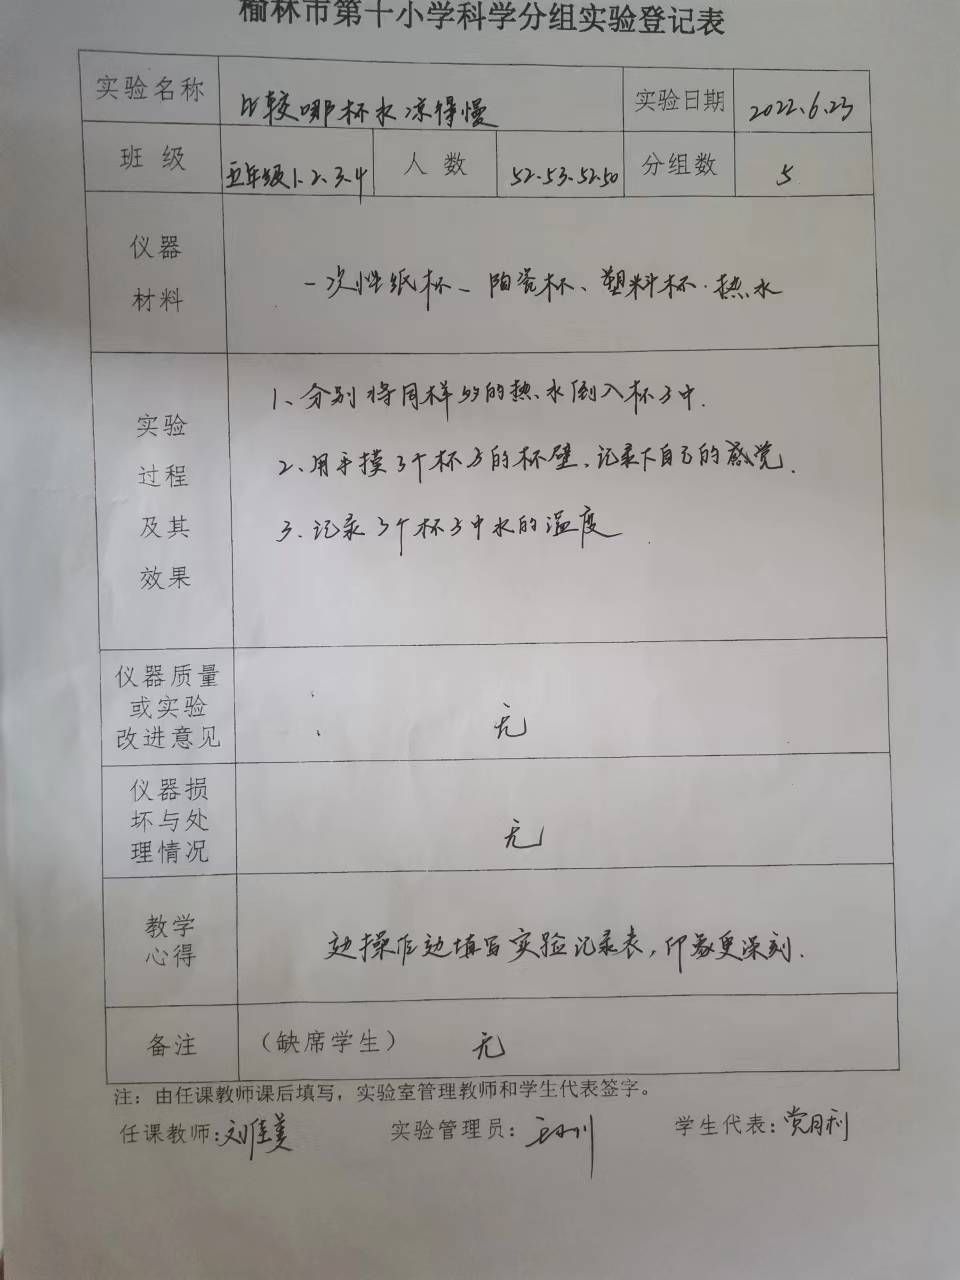 榆林市第十小学科学分组实验登记表
实验名称 比较哪杯水凉得慢 实验日期 2022.6.23
班级 五年级1.2.3.4 人数 52.53.52.50 分组数 5
仪器
材料
一次性纸杯、陶瓷杯、塑料杯.热水
实验
过程
及其
效果
1、分别将同样多的热水倒入杯子中.
2、用手摸3个杯子的杯壁、记录下自己的感觉.
3.记录3个杯子中水的温度
仪器质量
或实验
改进意见
无
仪器损
坏与处
理情况
无
教学
心得
边操作边填写实验记录表,印象更深刻.
备注 (缺席学生) 无
注:由任课教师课后填写,实验室管理教师和学生代表签字。
任课教师:刘佳美 实验管理员: 学生代表:党月利